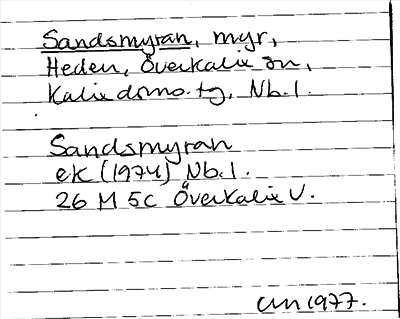 Sandsmyran, myr,
Heden, Överkalix sn,
Kalix dsmo. tg, Nb. l.
Sandsmyran
ek (1974) Nb. l.
26 M 5c Överkalix V.
1977.